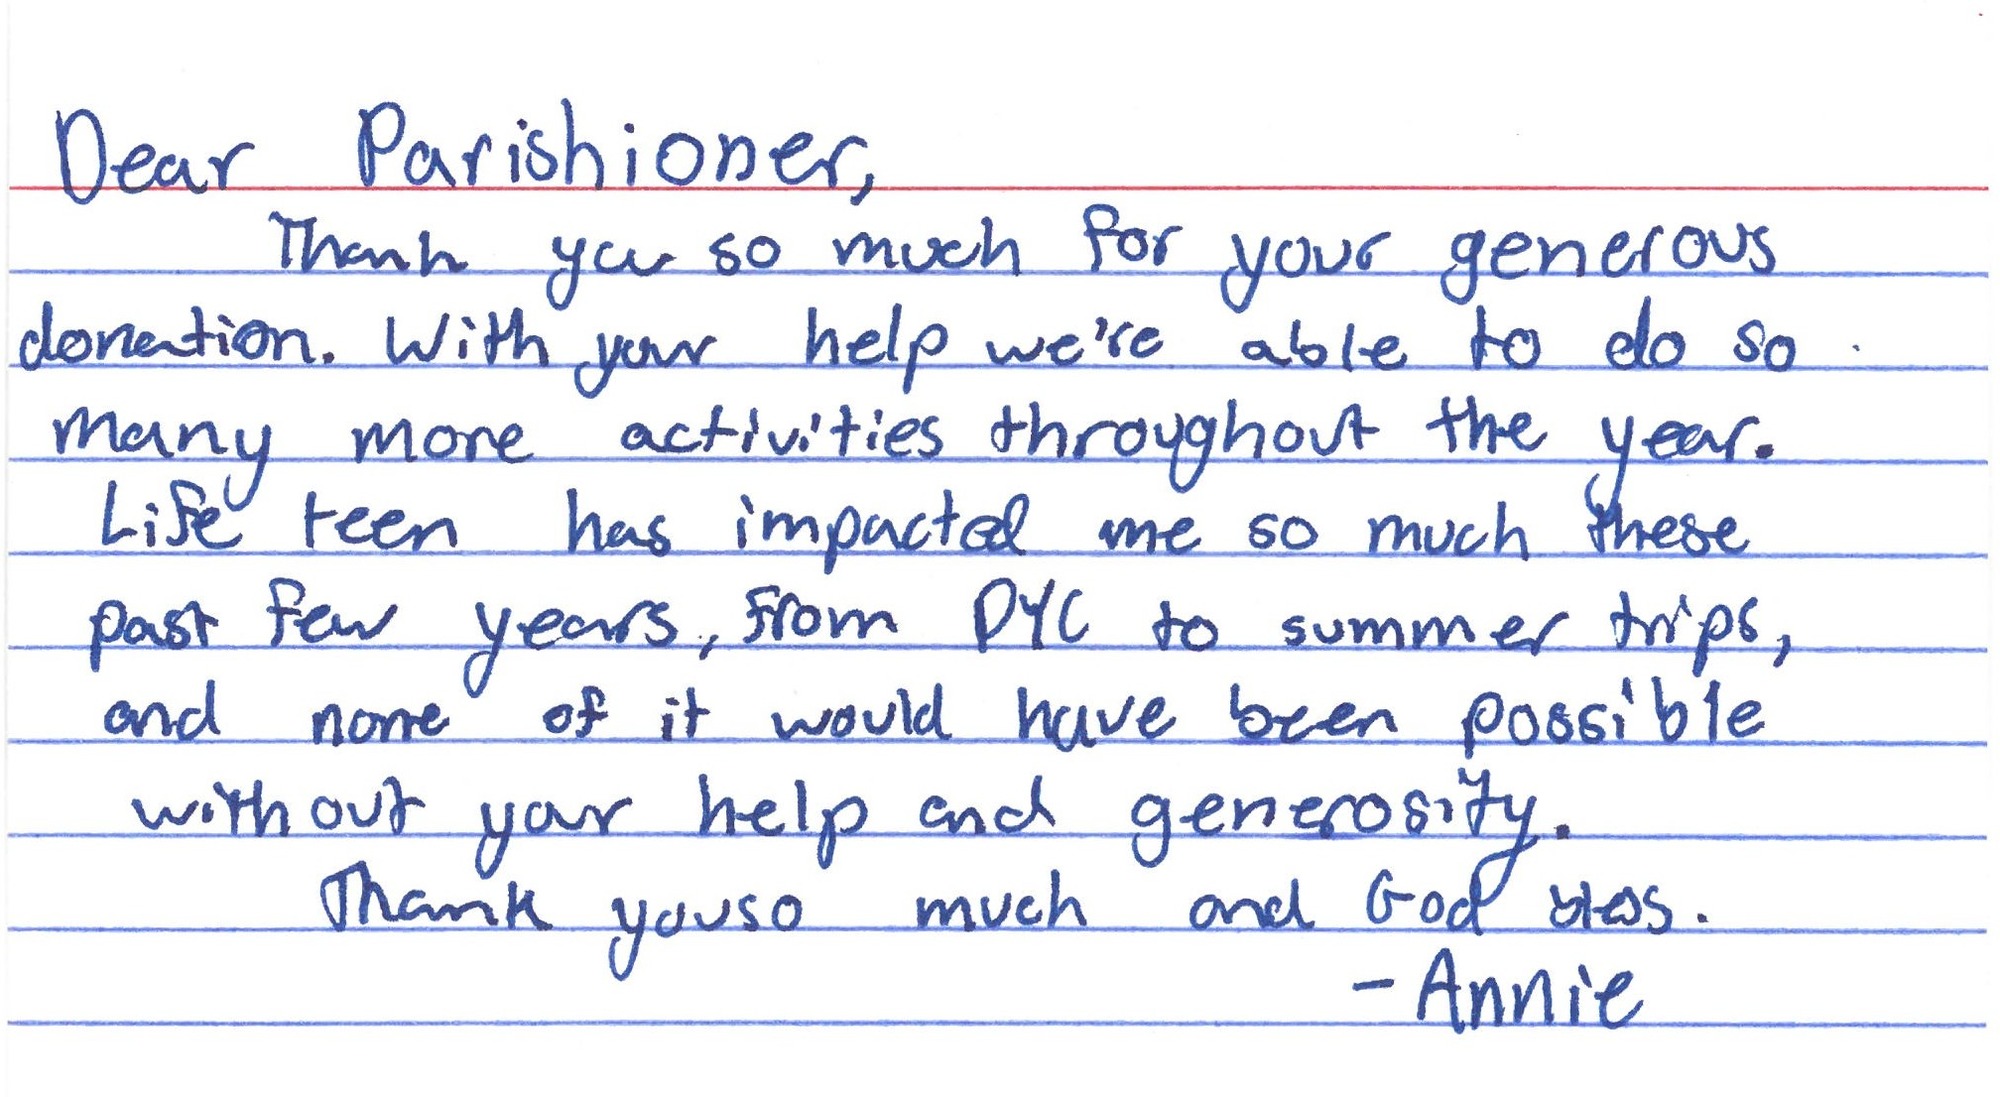 Dear Parishioner,
Thank you so much for your generous
donation. With your help we're able to do so
many more activities throughout the year.
Life teen has impacted me so much these
past few years, from DYC to summer trips,
and none of it would have been possible
without your help and generosity.
Thank you so much and God bless.
- Annie